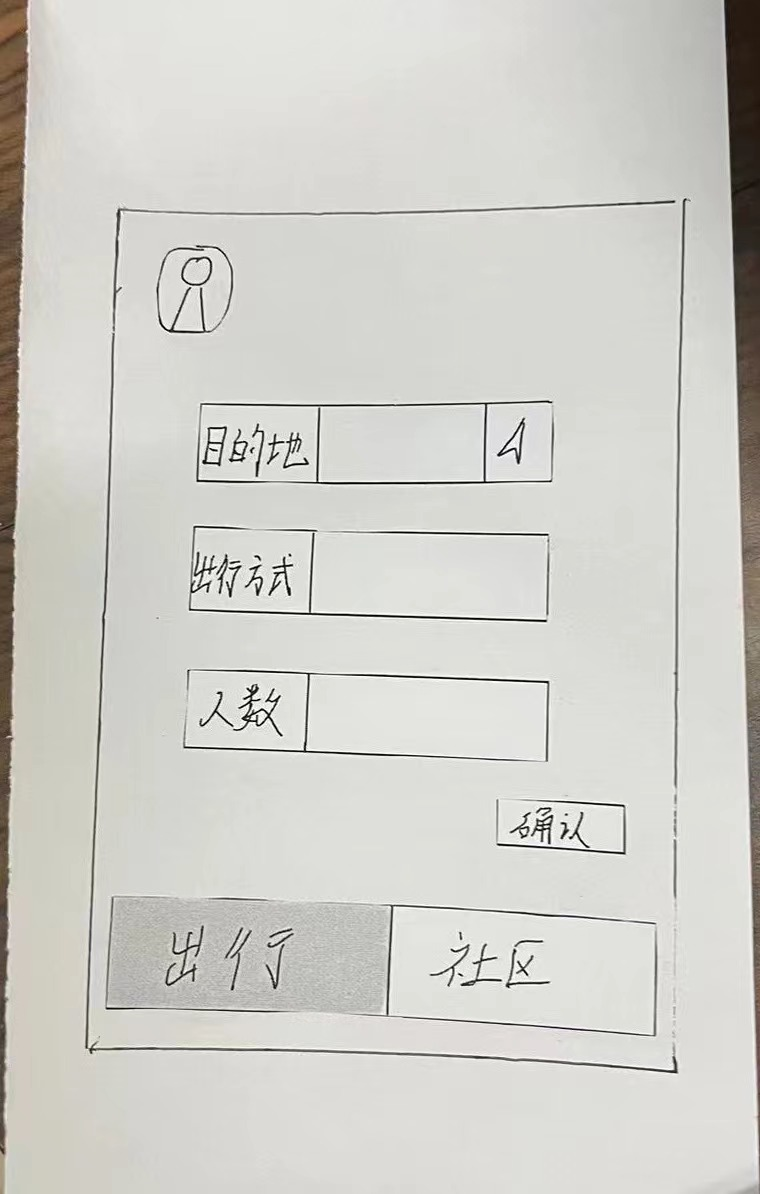 目的地
出行方式
人数
确认
出行 社区